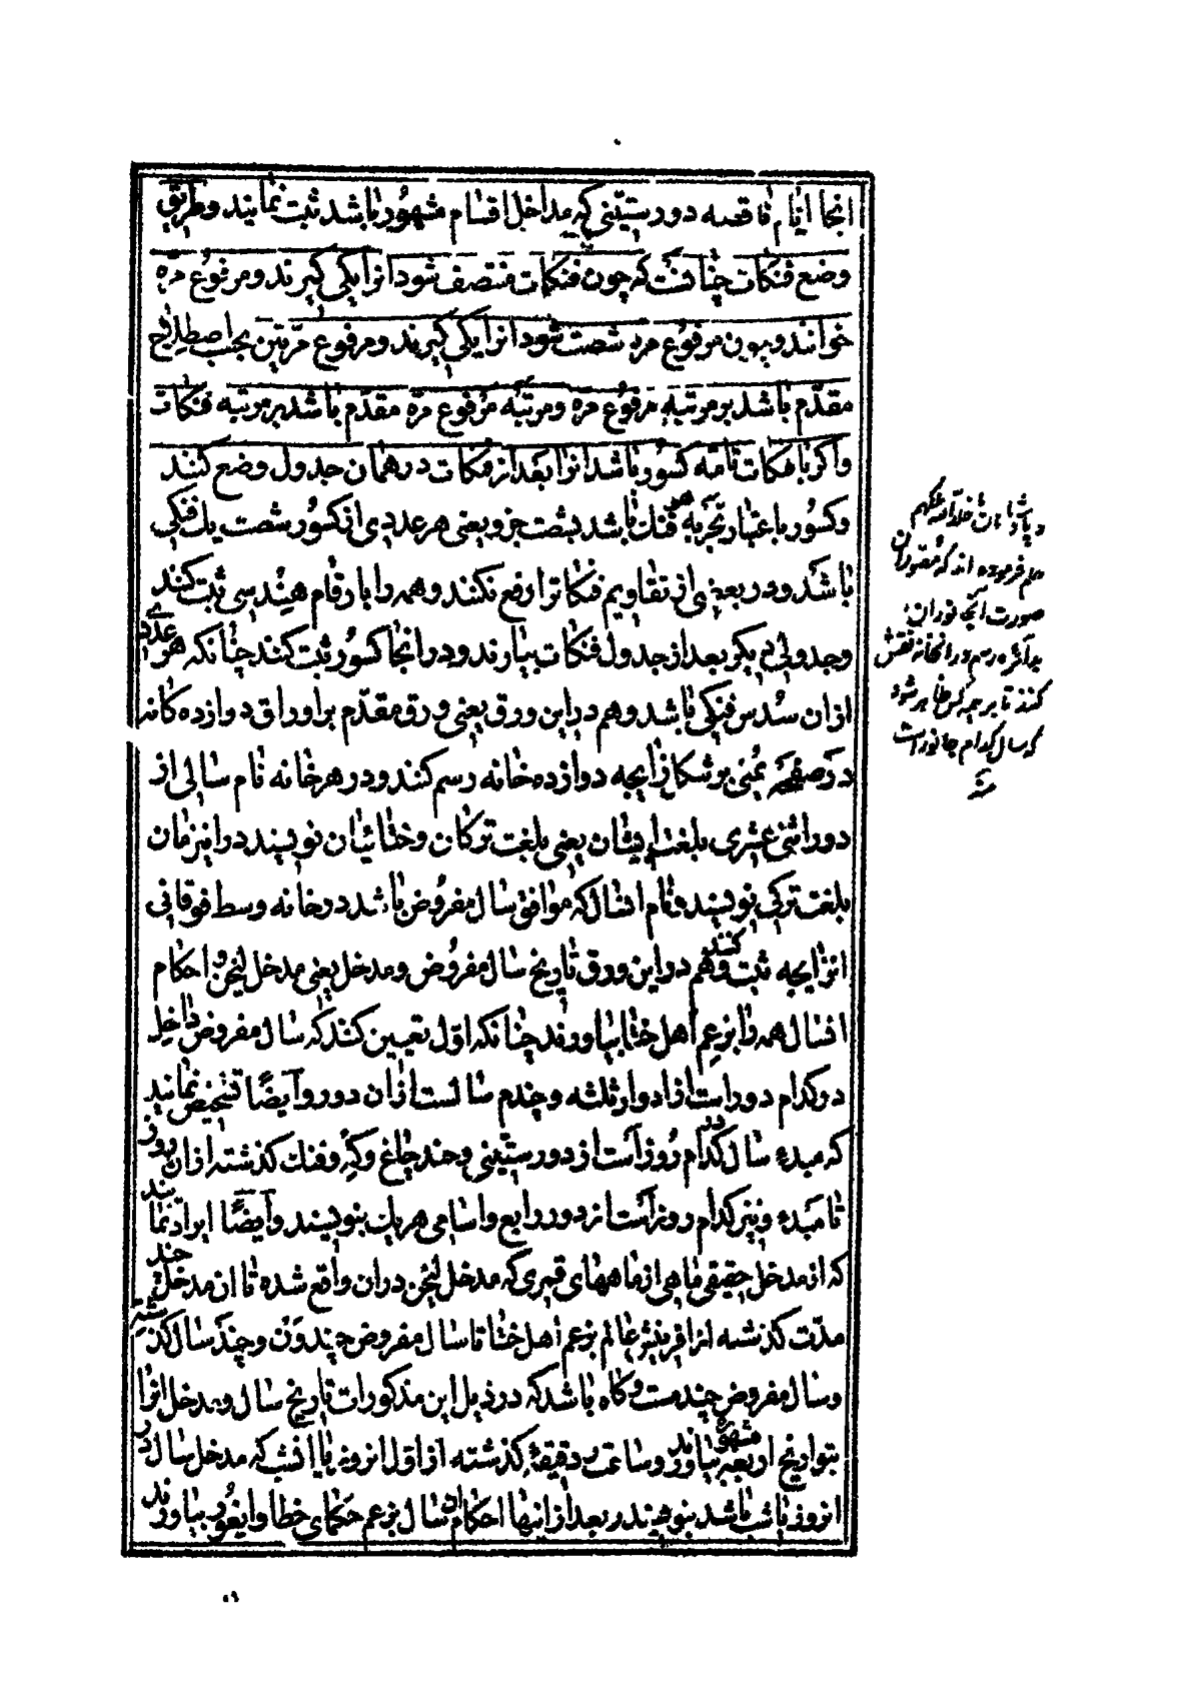 انجا ایام ناقصه دور ستینی که مداخل اقسام مشهور باشد ثبت نمایند و طریق
وضع فنکات چنانست که چون فنکات منتصف شود انرا یکی کیرند و مرفوع مره
خوانند و چون مرفوع مره شصت شود انرا یکی کیرند و مرفوع مرتین بحسب اصطلاح
مقدم باشد بر مرتبه مرفوع مره و مرتبه مرفوع مره مقدم باشد بر مرتبه فنکات
و اکر با فنکات تامه کسور باشد انرا بعد از فنکات در همان جدول وضع کنند
و کسور باعتبار تجزیه هر فنک باشد بشصت جزو یعنی هر عددی از کسور شصت یك فنکی
باشد و در بعضی از تقاویم فنکات را رفع نکنند و همه را بارقام هندسی ثبت کنند
و جدولی دیکر بعد از جدول فنکات بیارند و در انجا کسور ثبت کنند چنانکه هر عددی
ازان سدس فنکی باشد و هم در این ورق یعنی ورق مقدم بر اوراق دوازده کانه
در صفحه یمنی بر شکل زایجه دوازده خانه رسم کنند و در هر خانه نام سالی از
دور اثنی عشری بلغت ایشان یعنی بلغت ترکان و ختائیان نویسند در این زمان
بلغت ترکی نویسند و نام انسال که موافق سال مفروض باشد در خانه وسط فوقانی
انزایجه ثبت کنند و هم در این ورق تاریخ سال مفروض و مدخل یعنی مدخل لیجن و احکام
انسال همه را بزعم اهل ختا بیاورند چنانکه اول تعیین کنند که سال مفروض داخل
در کدام دور است از ادوار ثلثه و چندم سالست ازان دور و ایضًا تشخیص نمایند
که مبدء سال در کدام روز است از دور ستینی و چند چاغ و که و فنك کذشته ازان روز
تا مبدء و نیز کدام روز است از دور رابع و اسامی هریك بنویسند و ایضًا ایراد نمایند
که از مدخل حقیقی ماهی از ماههای قمری که مدخل لیجن دران واقع شده تا ان مدخل چند
مدت کذشته از افرینش عالم بزعم اهل ختا تا سال مفروض چند ون و چند سال کذشته
و سال مفروض چندمست و کاه باشد که در ذیل این مذکورات تاریخ سال و مدخل انرا
بتواریخ اربعه مشهوره بیاورند و ساعت و دقیقهٔ کذشته از اول انروز یا انشب که مدخل سال در
انروز یا شب باشد بنویسند و بعد از اینها احکام ان سال بزعم حکمای خطا و ایغور بیاورند
و پادشاهان خلد الله ملکهم
هم فرموده اند که مصوران
صورت آن جانوران
بدائره رسم و در انخانه نقش
کنند تا بر همه کس ظاهر شود
که سال کدام جانور است
منه